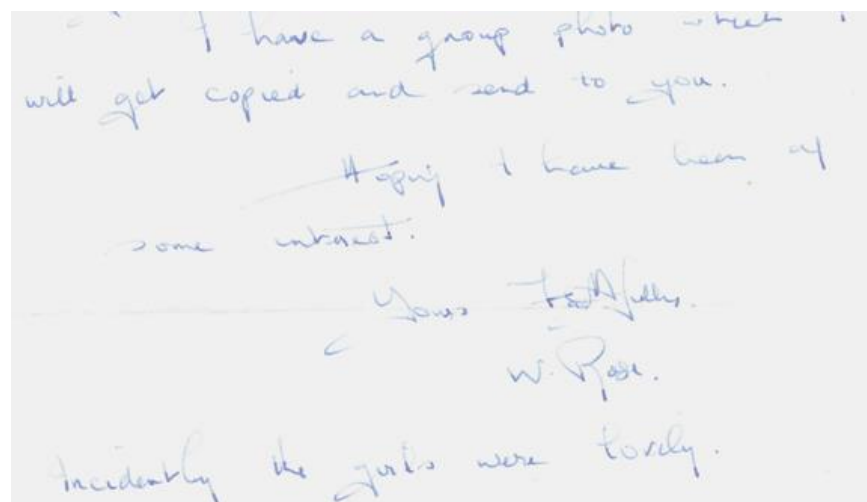 I have a group photo which I
will get copied and send to you.
Hoping I have been of
some interest.
Yours Faithfully.
W. Rose.
Incidently the girls were lovely.